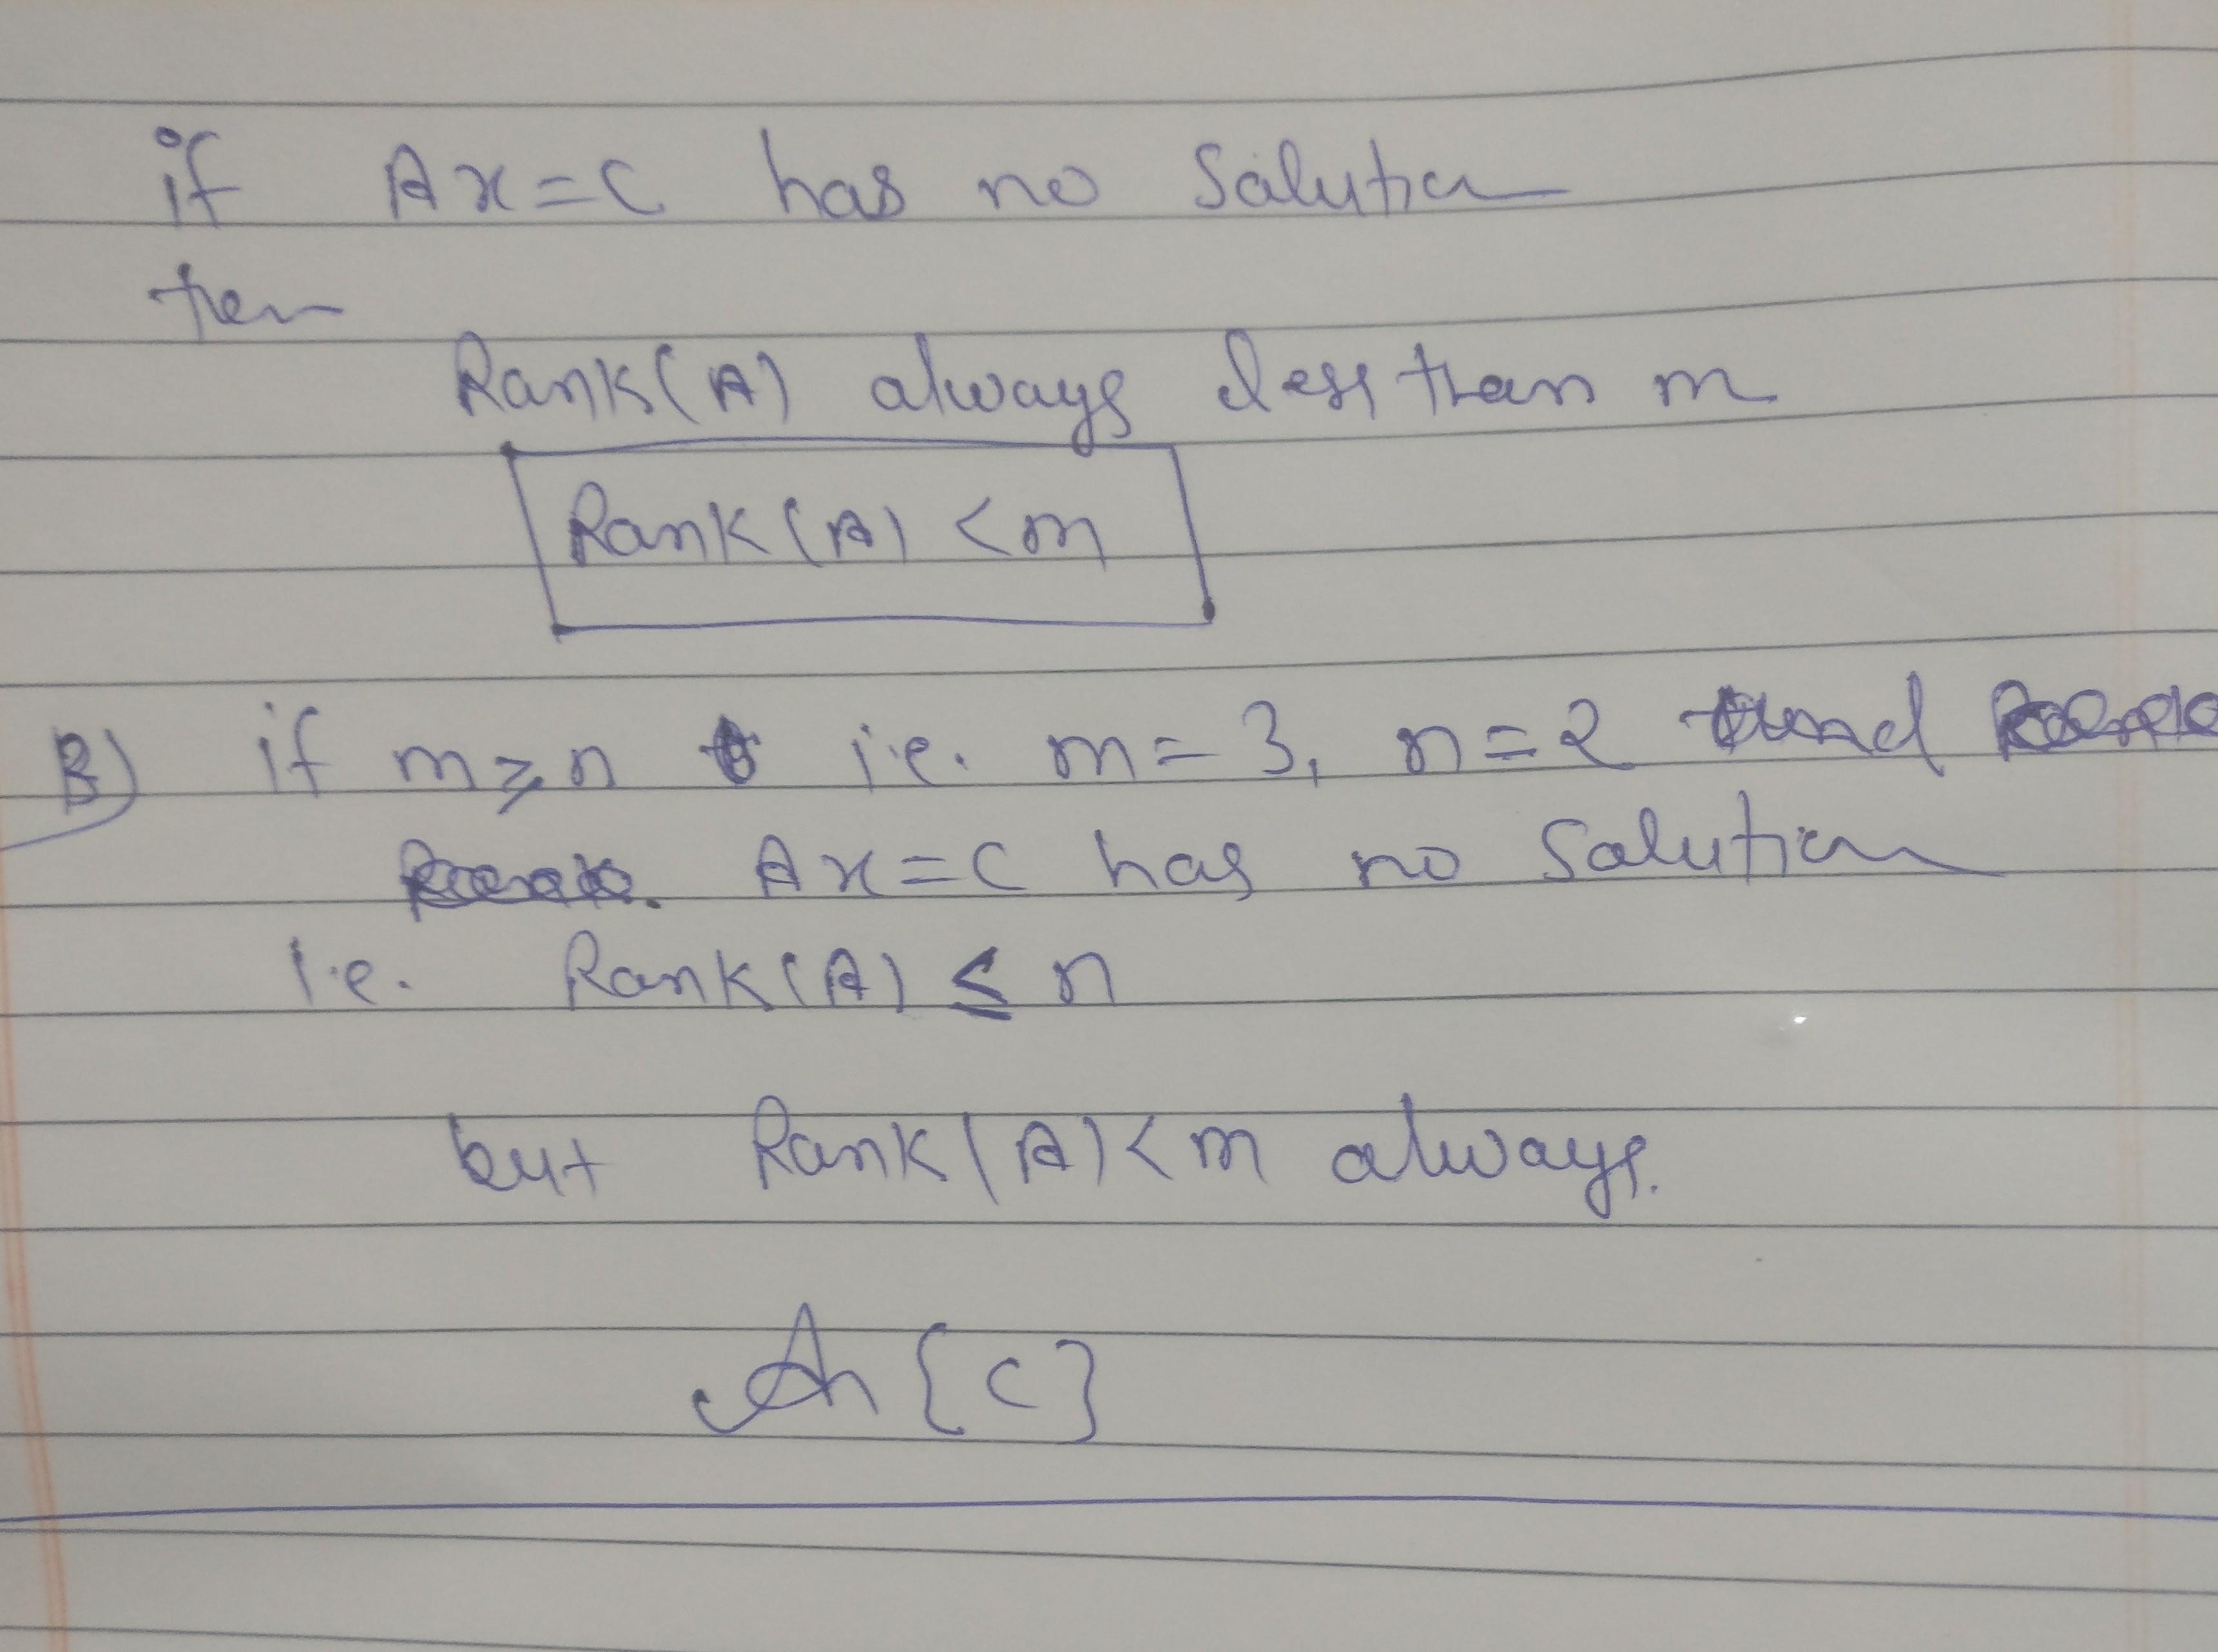 if Ax=c has no Solution
then
Rank(A) always less than m
Rank(A) < m
B) if m ≥ n i.e. m = 3, n = 2 and
Ax=c has no Solution
i.e. Rank(A) ≤ n
but Rank(A) < m always.
An {c}